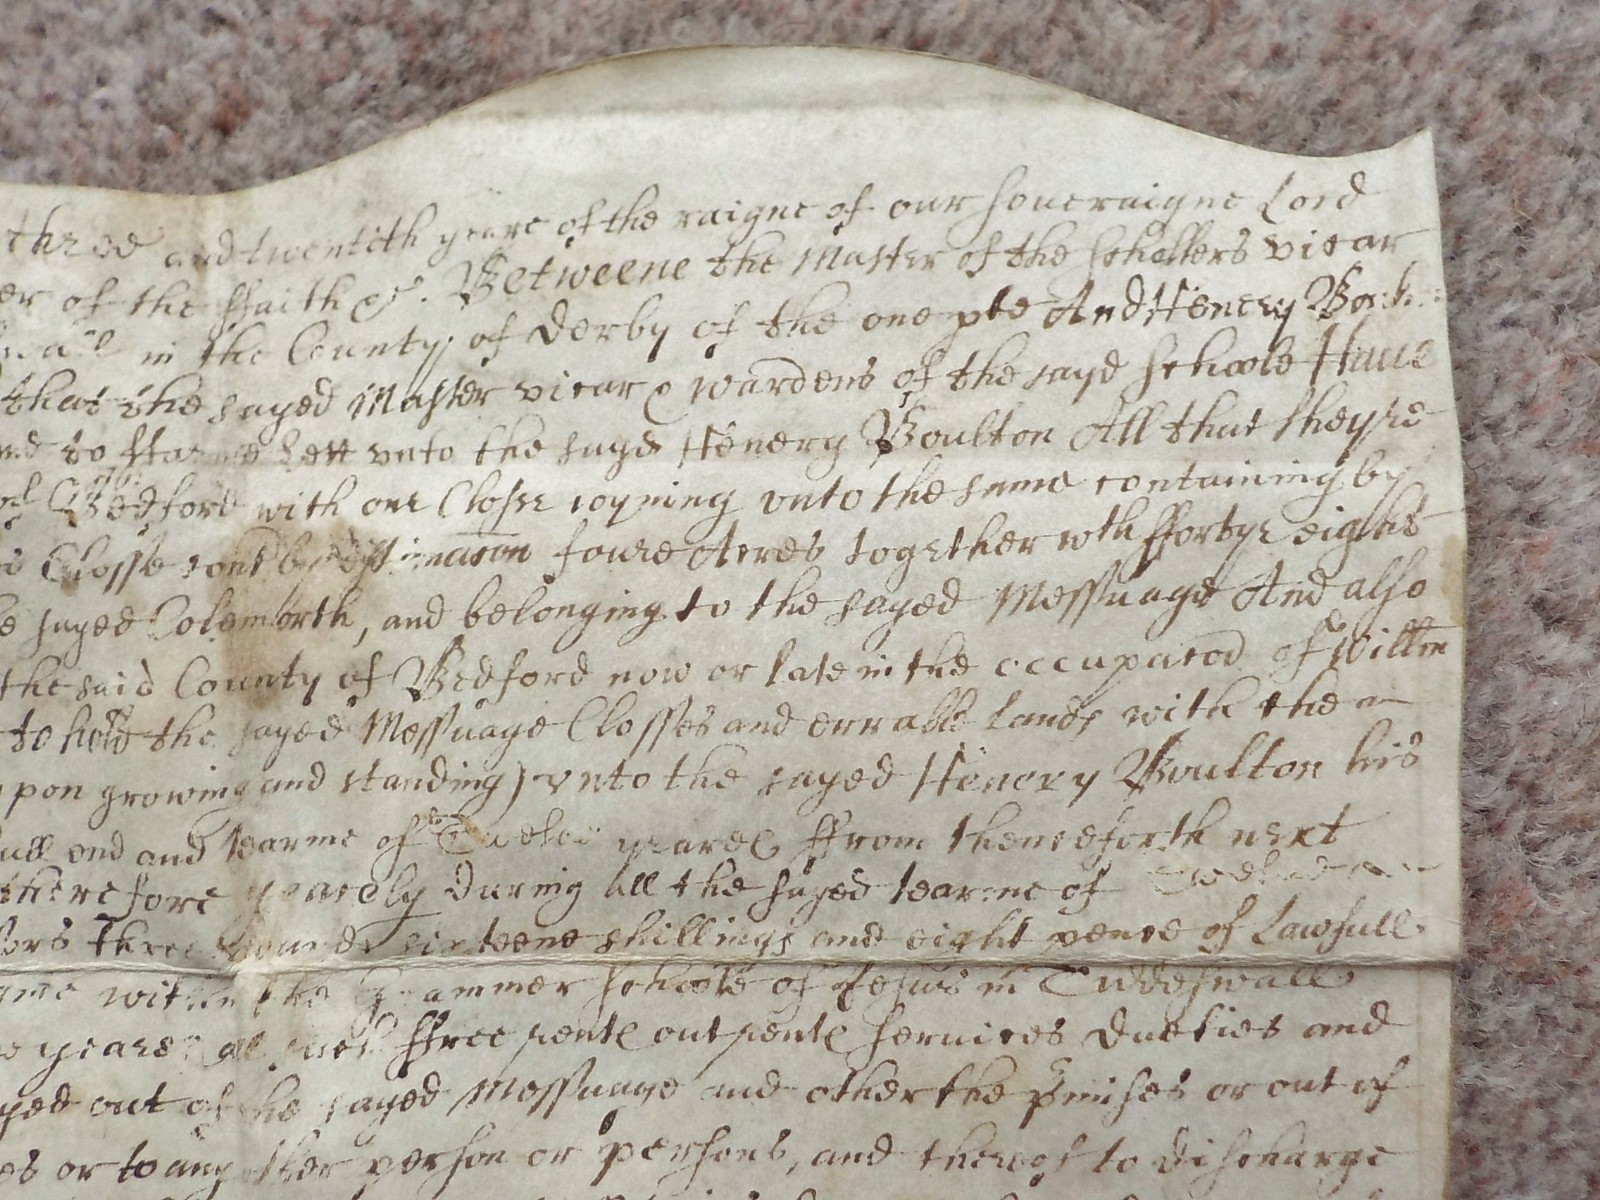 three and twentith yeare of the raigne of our soueraigne Lord
er of the ffaith &c. Betweene the Master of the schollers vicar
in the County of Derby of the one pte And Henery
that the sayed Master vicar & wardens of the sayd schoole Haue
nd to ffarme Lett vnto the sayd Henery Boulton All that theyre
Bedford with one Closse ioyning vnto the same containing by
Closse cont by estimacion foure Acres together wth ffortye eight
sayed Colemorth, and belonging to the sayed Messuage And also
the said County of Bedford now or late in the occupacon of Willm
to hold the sayed Messuage Closses and errable Lands with the
pon growing and standing) vnto the sayed Henery Boulton his
ull end and tearme of yeares ffrom thenceforth next
therefore yearely During all the sayed tearme of
ors Three pounds sixteene shillings and eight pence of Lawfull
within the Grammer schoole of Jesus in Tiddeswall
yeares all such ffree rente outrente seruices Dueties and
yed out of the sayed Messuage and other the pmises or out of
es or to any other person or persons, and thereof to discharge